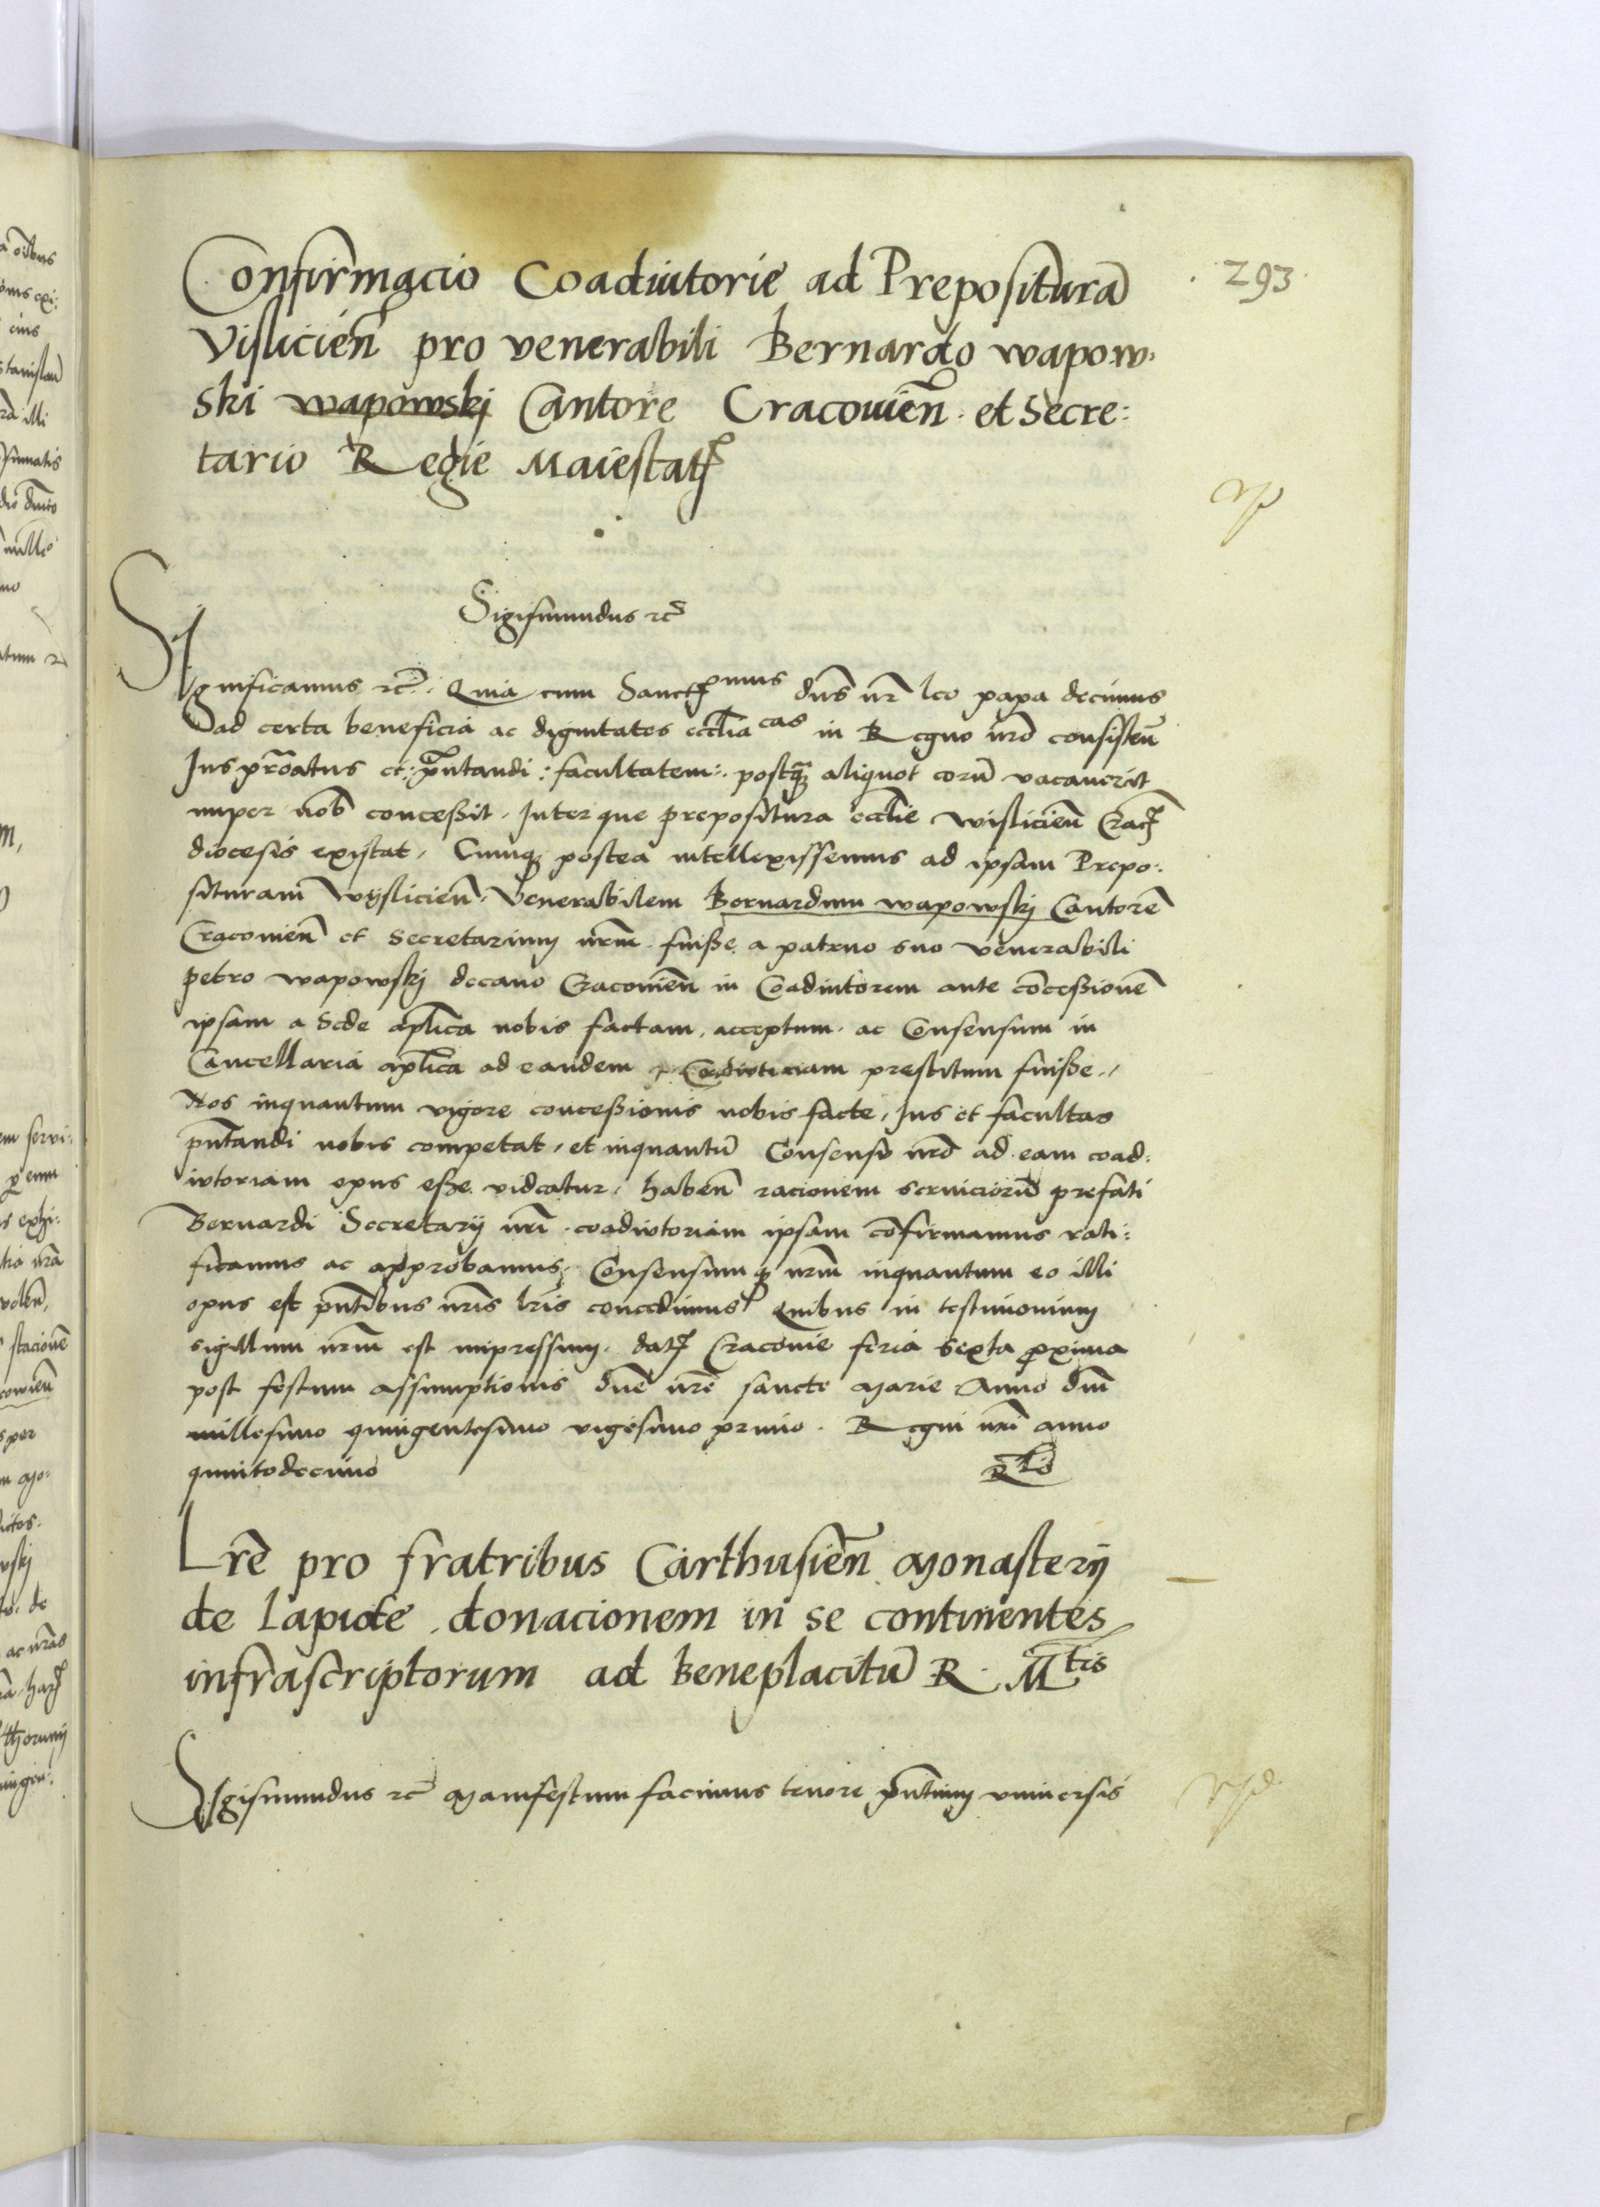 Confirmacio Coadiutorie ad Prepositurā
Visliciēn pro venerabili Bernardo wapow-
ski wapowskj Cantore Cracouieñ. et Secre:
tario Regie Maiestatꝭ
293.
Sigismundus ꝛc̄
Significamus ꝛc̄. Quia cum Sanctꝭmus dn̄s nr̄ leo papa decimus
ad certa beneficia ac dignitates eccl̄iacas in Regno nr̄o consisteñ
Jus pr̄oatus et: pn̄tandi: facultatem: postqꝫ aliquot eorū vacauerit
nuper nob̄ conceßit. Inter que prepositura eccl̄ie wislicieñ Cracꝭ
diocesis existat, Cumqꝫ postea intellexissemus ad ipsam Prepo:
situram wyslicieñ, Venerabilem Bernardum wapowskj Cantorē
Cracouieñ et Secretarium nr̄m fuiße a patruo suo venerabili
petro wapowskj decano Cracouieñ in Coadiutorem ante cōceßionē
ipsam a Sede apl̄ica nobis factam, acceptum. ac Consensum in
Cancellaria apl̄ica ad eandem Coadiutoriam prestitum fuiße.,
Nos inquantum vigore conceßionis nobis facte, Jus et facultas
pn̄tandi nobis competat, et inquantū Consensu nr̄o ad eam coad:
iutoriam opus eße videatur, habeñ racionem seruiciorū prefati
Bernardi Secretarij nr̄i. coadiutoriam ipsam cōfirmamus rati:
ficamus ac approbamus, Consensumqꝫ nr̄m inquantum eo illi
opus est pn̄tibus nr̄is lr̄is concedimus Quibus in testimonium
sigillum nr̄m est impressum. datꝭ Cracouie feria sexta proxima
post festum assumptionis dn̄e nr̄e sancte Marie Anno dn̄i
millesimo quingentesimo vigesimo primo. Regni nr̄i anno
quintodecimo
Lr̄e pro fratribus Carthusieñ Monasterij
de Lapide, donacionem in se continentes
infrascriptorum ad Beneplacitū R. Mtis
Sigismundus ꝛc̄ Manifestum facimus tenore pn̄tium vniuersis